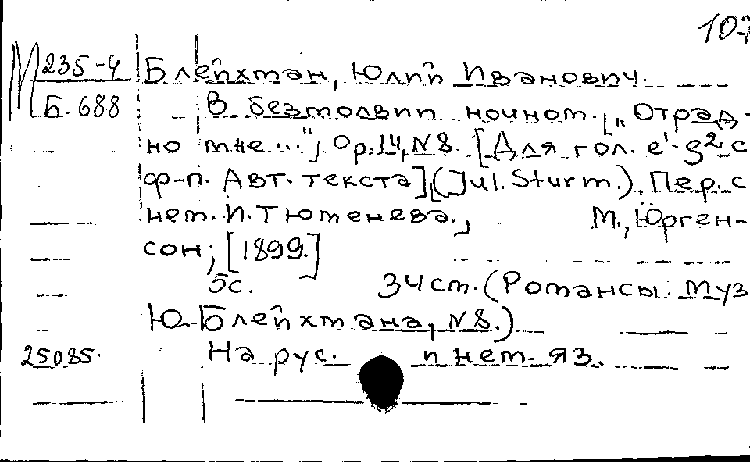 107
М 235-4 Блейхман, Юлий Иванович.
Б. 688 В безмолвии ночном. [„Отрад-
но мне..."], Ор. 14, №8. [Для гол. e¹-g² с
ф-п. Авт. текста] (Jul. Sturm.). Пер. с
нем. И. Тюменева., М., Юрген-
сон, [1899.]
5с. 34 cm. (Романсы. Муз
Ю. Блейхмана, №8.)
25085. На рус. и нем. яз.